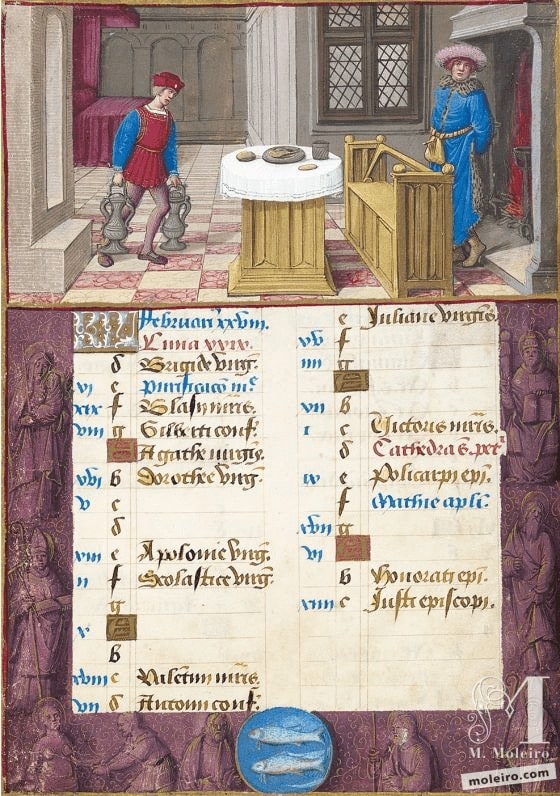 Februari xxviii.
Luna xxix.
d Brigide virg.
vi e Purificacio m͞e
xix f Blasii mris.
viii g Gilberti conf.
Agathe virgis.
xvi b Dorothee virg.
v c
d
xiii e Apolonie virg.
ii f Scolastice virg.
g
x
b
xviii c Valetini mris.
vii d Antonii conf.
e Juliane virgis.
xv f
iiii g
xii b
i c Victoris mris.
d Cathedra s. petri
ix e Policarpi epi.
f Mathie apli.
xvii g
vi
b Honorati epi.
xiiii c Justi episcopi.
M
M. Moleiro
moleiro.com